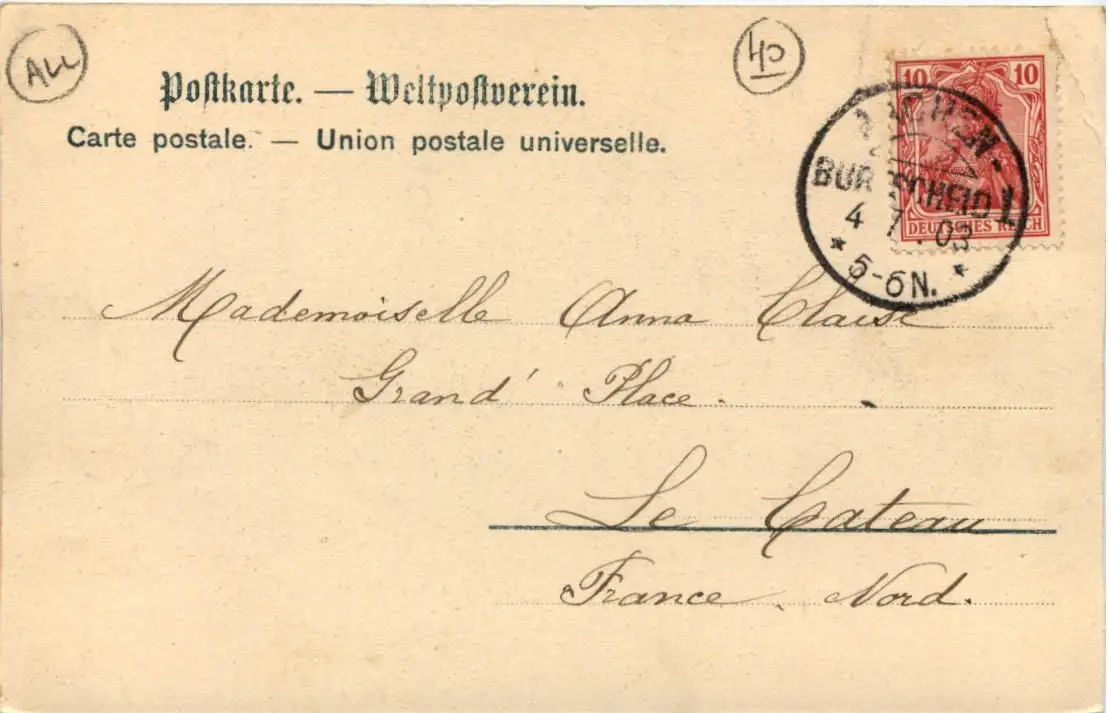 ALL
40
Postkarte. — Weltpostverein.
Carte postale. — Union postale universelle.
10 10
DEUTSCHES REICH
AACHEN-
BURTSCHEID 1.
4 7 03
* 5-6N. *
Mademoiselle Anna Claise
Grand' Place.
Le Cateau
France. Nord.